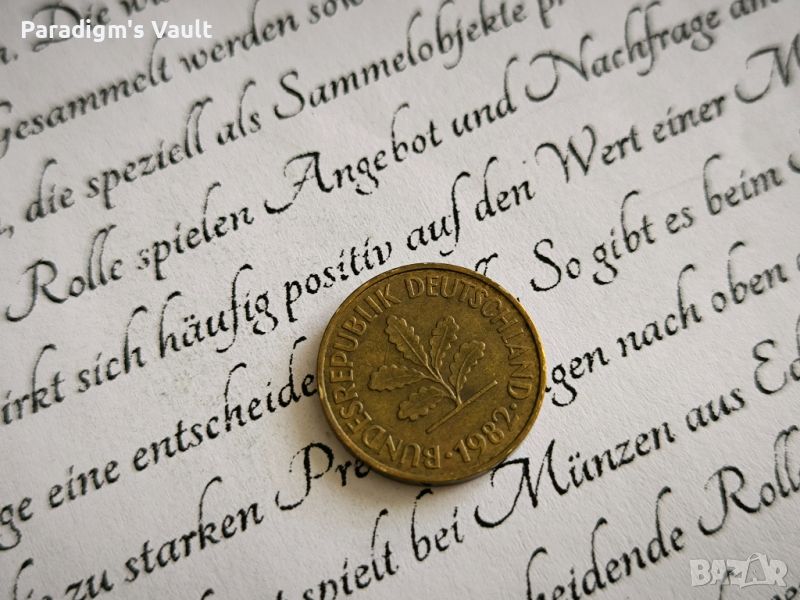 Paradigm's Vault
n. Die
Gesammelt werden
die speziell als Sammelobjekte
Rolle spielen Angebot und Nachfrage
wirkt sich häufig positiv auf den Wert einer
ge eine entscheide So gibt es beim
zu starken Pre gen nach oben
spielt bei Münzen aus
heidende Rolle
BUNDESREPUBLIK DEUTSCHLAND
·1982·
BAZAR